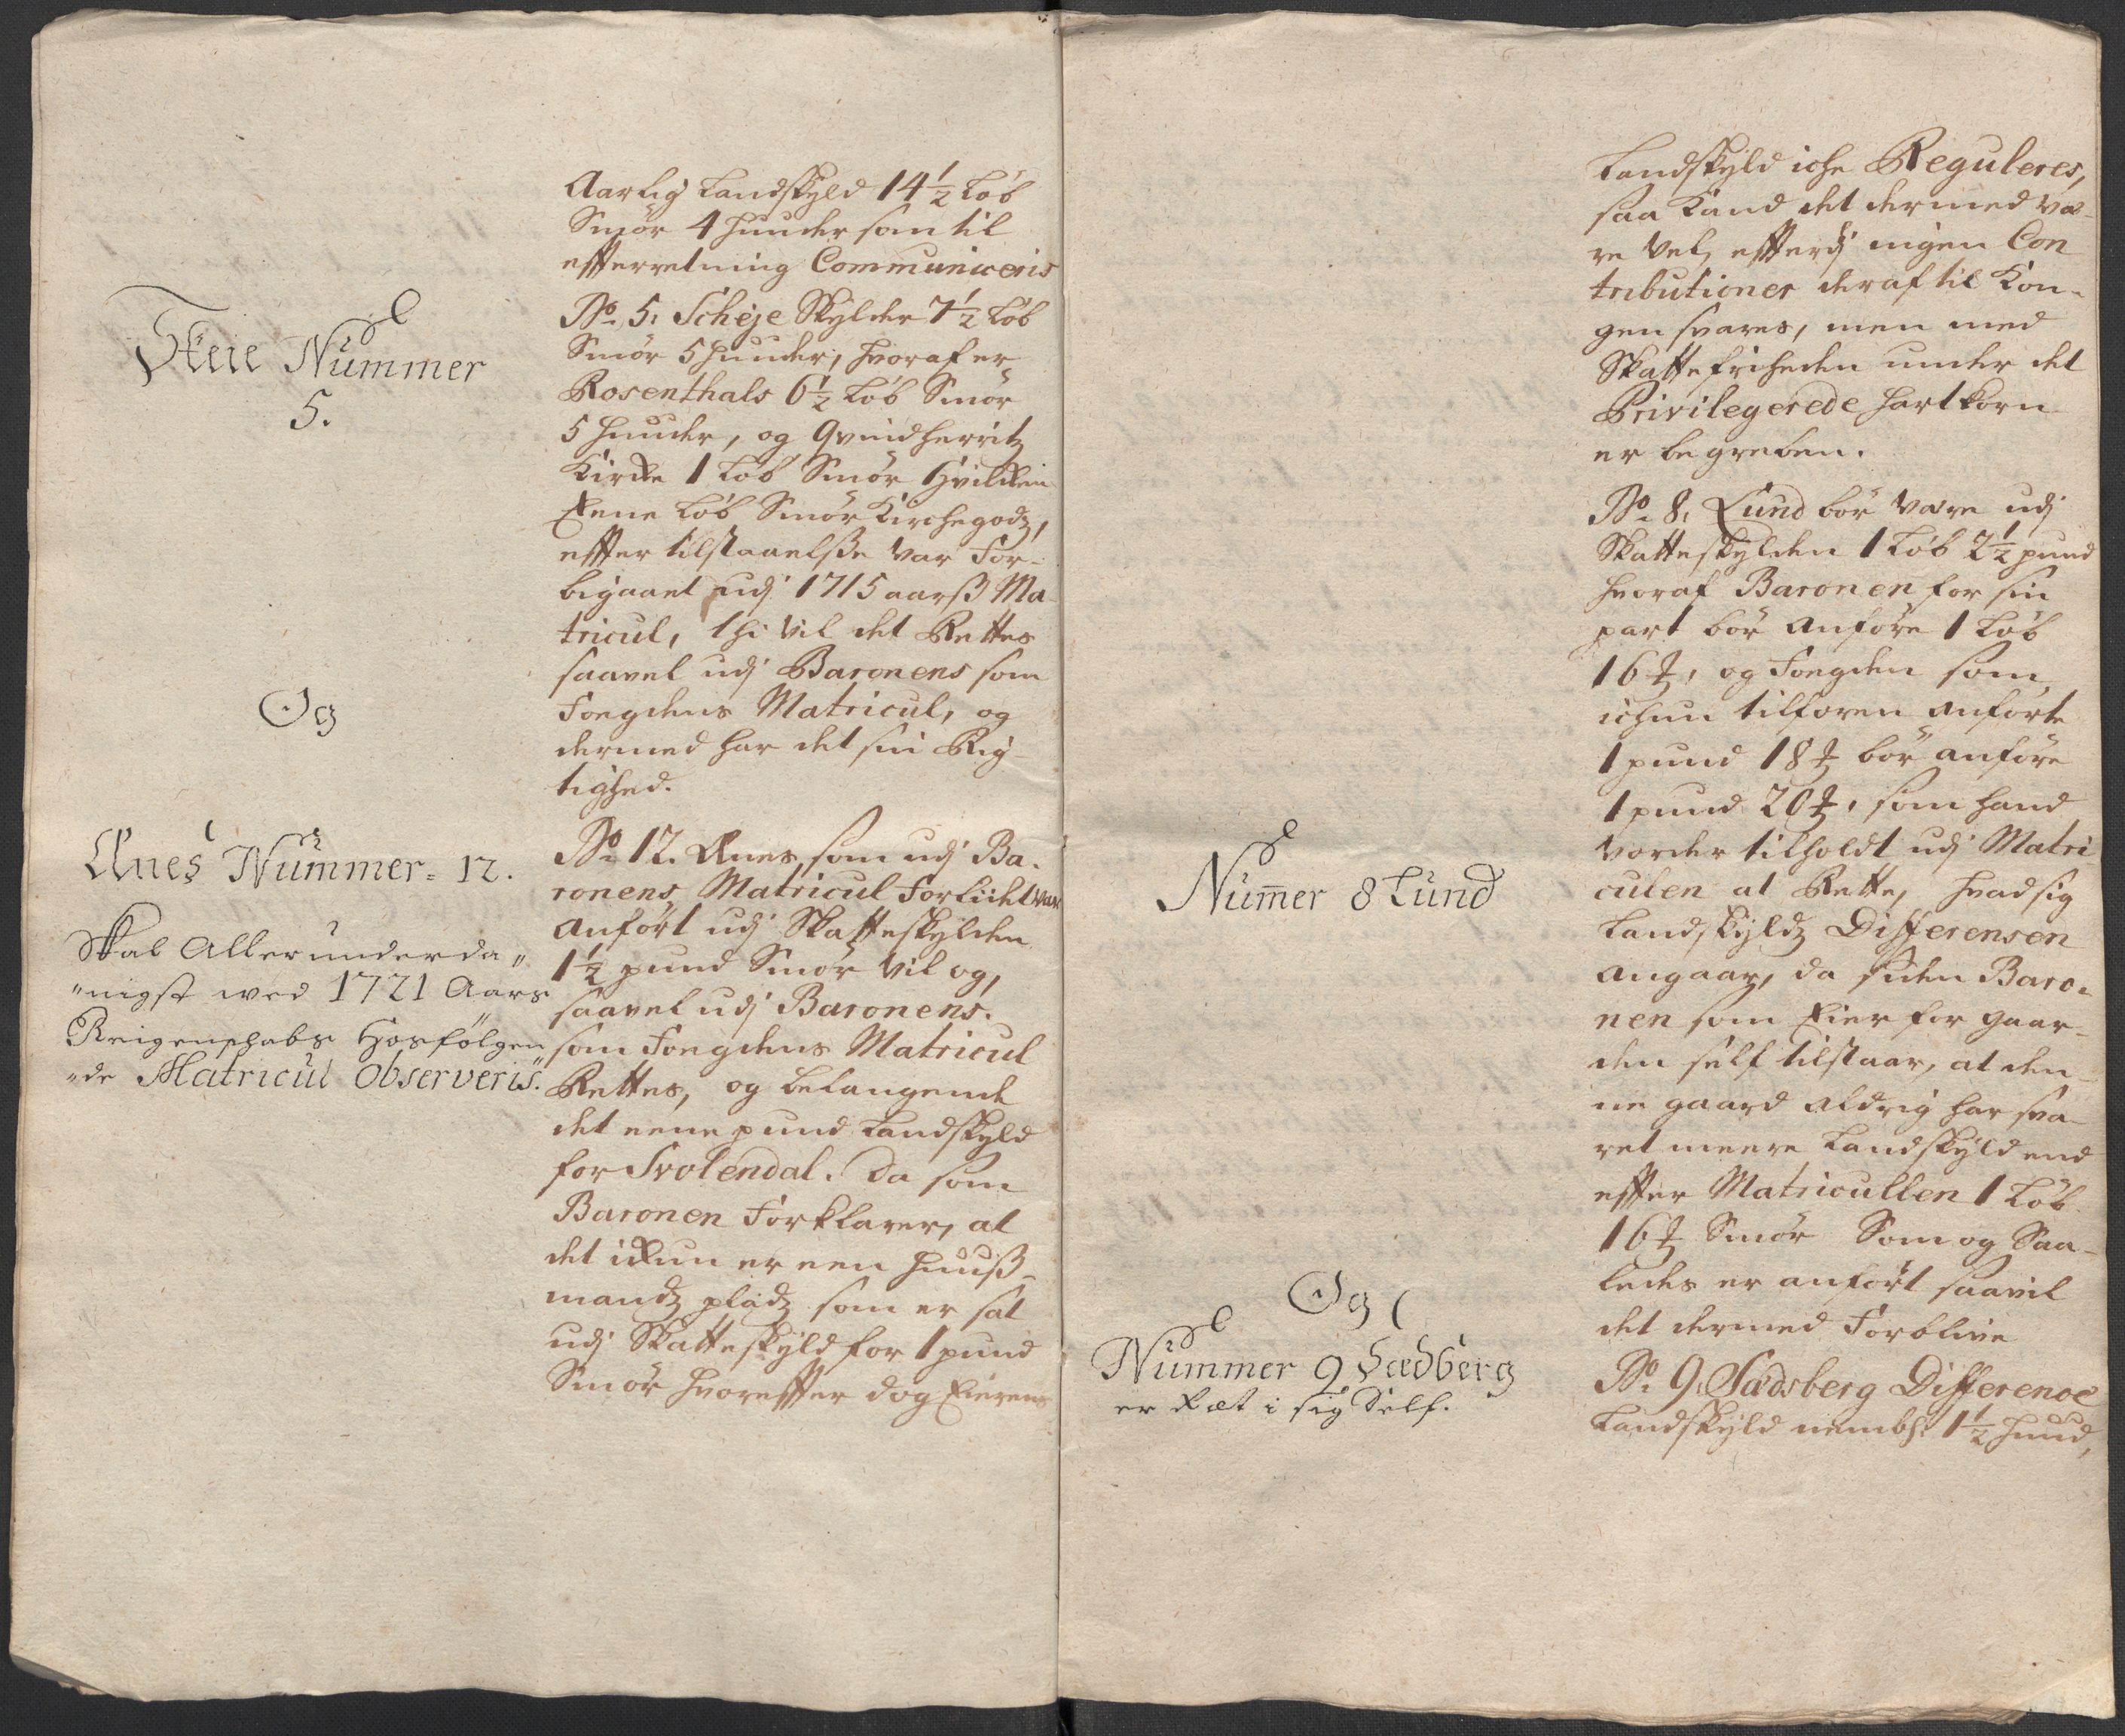 Skeie Nummer
5.
Og
Ænes Nummer = 12.
Skal Allerunderda„
„nigst wed 1721 Aars
Reigenschabs Hosfølgen
„de Matricul Observeris.
Aarlig Landskyld 14½ Løb
Smør 4 huuder som til
efterretning Communiceris
No 5, Scheje Skylder 7½ Løb
Smør 5 huuder, hvoraf er
Rosenthals 6½ Løb Smør
5 huuder, og Qvindherritz
Kirke 1 Løb Smør Hvilken
Eene Løb Smør Kirchegodz,
effter tilstaaelsse var For-
bigaaet udj 1715 aarss Ma-
tricul, thi vil det Rettes
saavel udj Baronens som
Fogdens Matricul, og
dermed har det sin Rig-
tighed.
No 12. Ænes, som udj Ba-
ronens Matricul forliidet var
Anført udj Skatteskylden
1½ pund Smør vil og,
saavel udj Baronens.
som Fogdens Matricul
Rettes, og belangende
det eene pund Landskyld
for Svolendal. Da som
Baronen Forklarer, at
det ikun er een huuss-
mandz pladz som er sat
udj Skatteskyld for 1 pund
Smør hvoreffter dog Eierens
Nummer 8 Lund
Og
Nummer 9 Sædberg
er Ræt i sig Self.
Landskyld iche Reguleres,
saa Kand det dermed væ-
re vel, efterdj ingen Con
tributioner deraf til Kon-
gen svares, men med
Skattefriheden under det
Privilegerede hartkorn
er begreben.
No 8, Lund bør være udj
Skatteskylden 1 Løb 2½ pund
hvoraf Baronen for sin
part bør anføre 1 Løb
16 ℔, og Fogden som
ichun tilforen anførte
1 pund 18 ℔ bør anføre
1 pund 20 ℔, som hand
vorder tilholdt udj Matri
culen at Rette, hvad sig
Landskyldz Differensen
angaar, da siden Baro-
nen som Eier for gaar-
den self tilstaar, at den-
ne gaard aldrig har sva-
ret meere Landskyld end
effter Matricullen 1 Løb
16 ℔ Smør Som og Saa-
ledes er anført saa vil
det dermed Forblive
No 9, Sædsberg Difference
Landskyld nembl: 1½ huud,